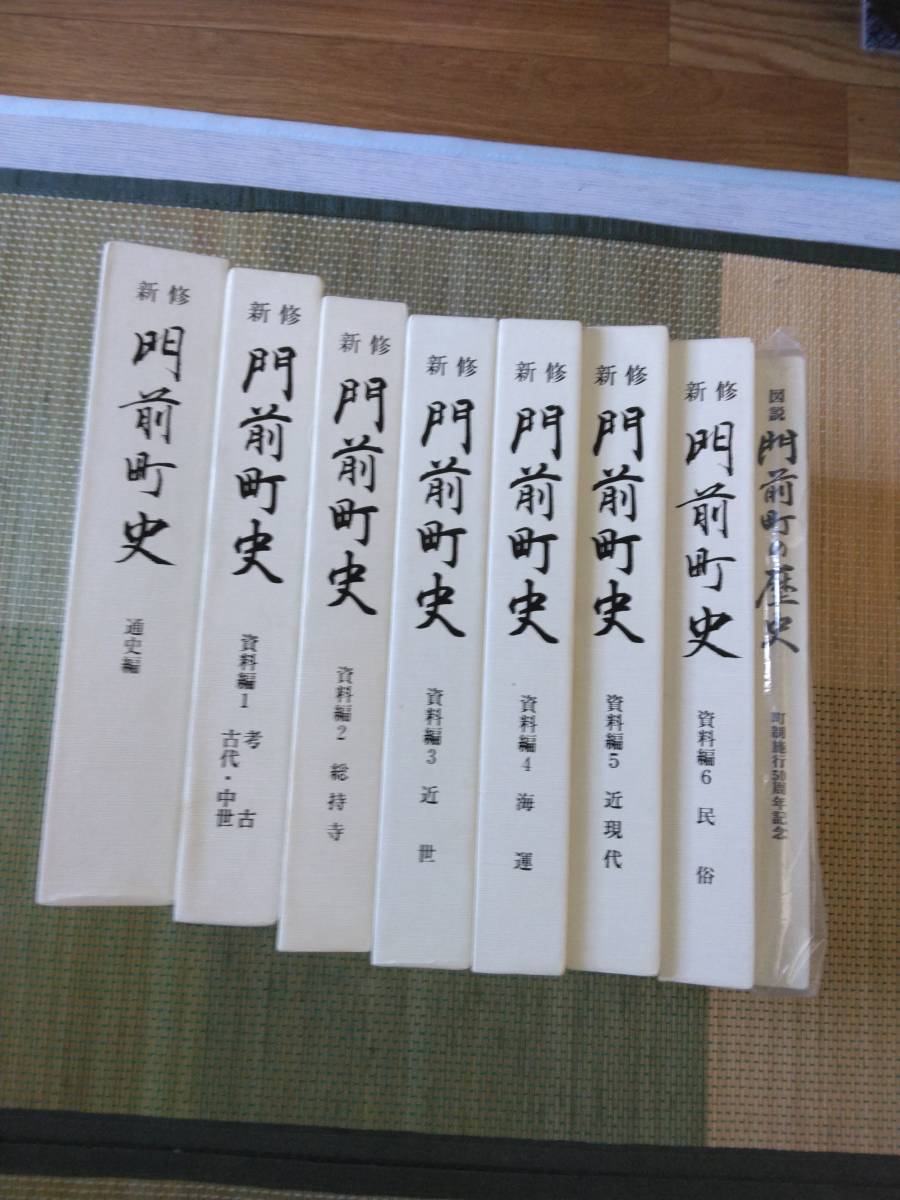 新修
門前町史
通史編
新修
門前町史
資料編1
考古
古代・中世
新修
門前町史
資料編2 総持寺
新修
門前町史
資料編3 近世
新修
門前町史
資料編4 海運
新修
門前町史
資料編5 近現代
新修
門前町史
資料編6 民俗
図説
門前町の歴史
町制施行50周年記念